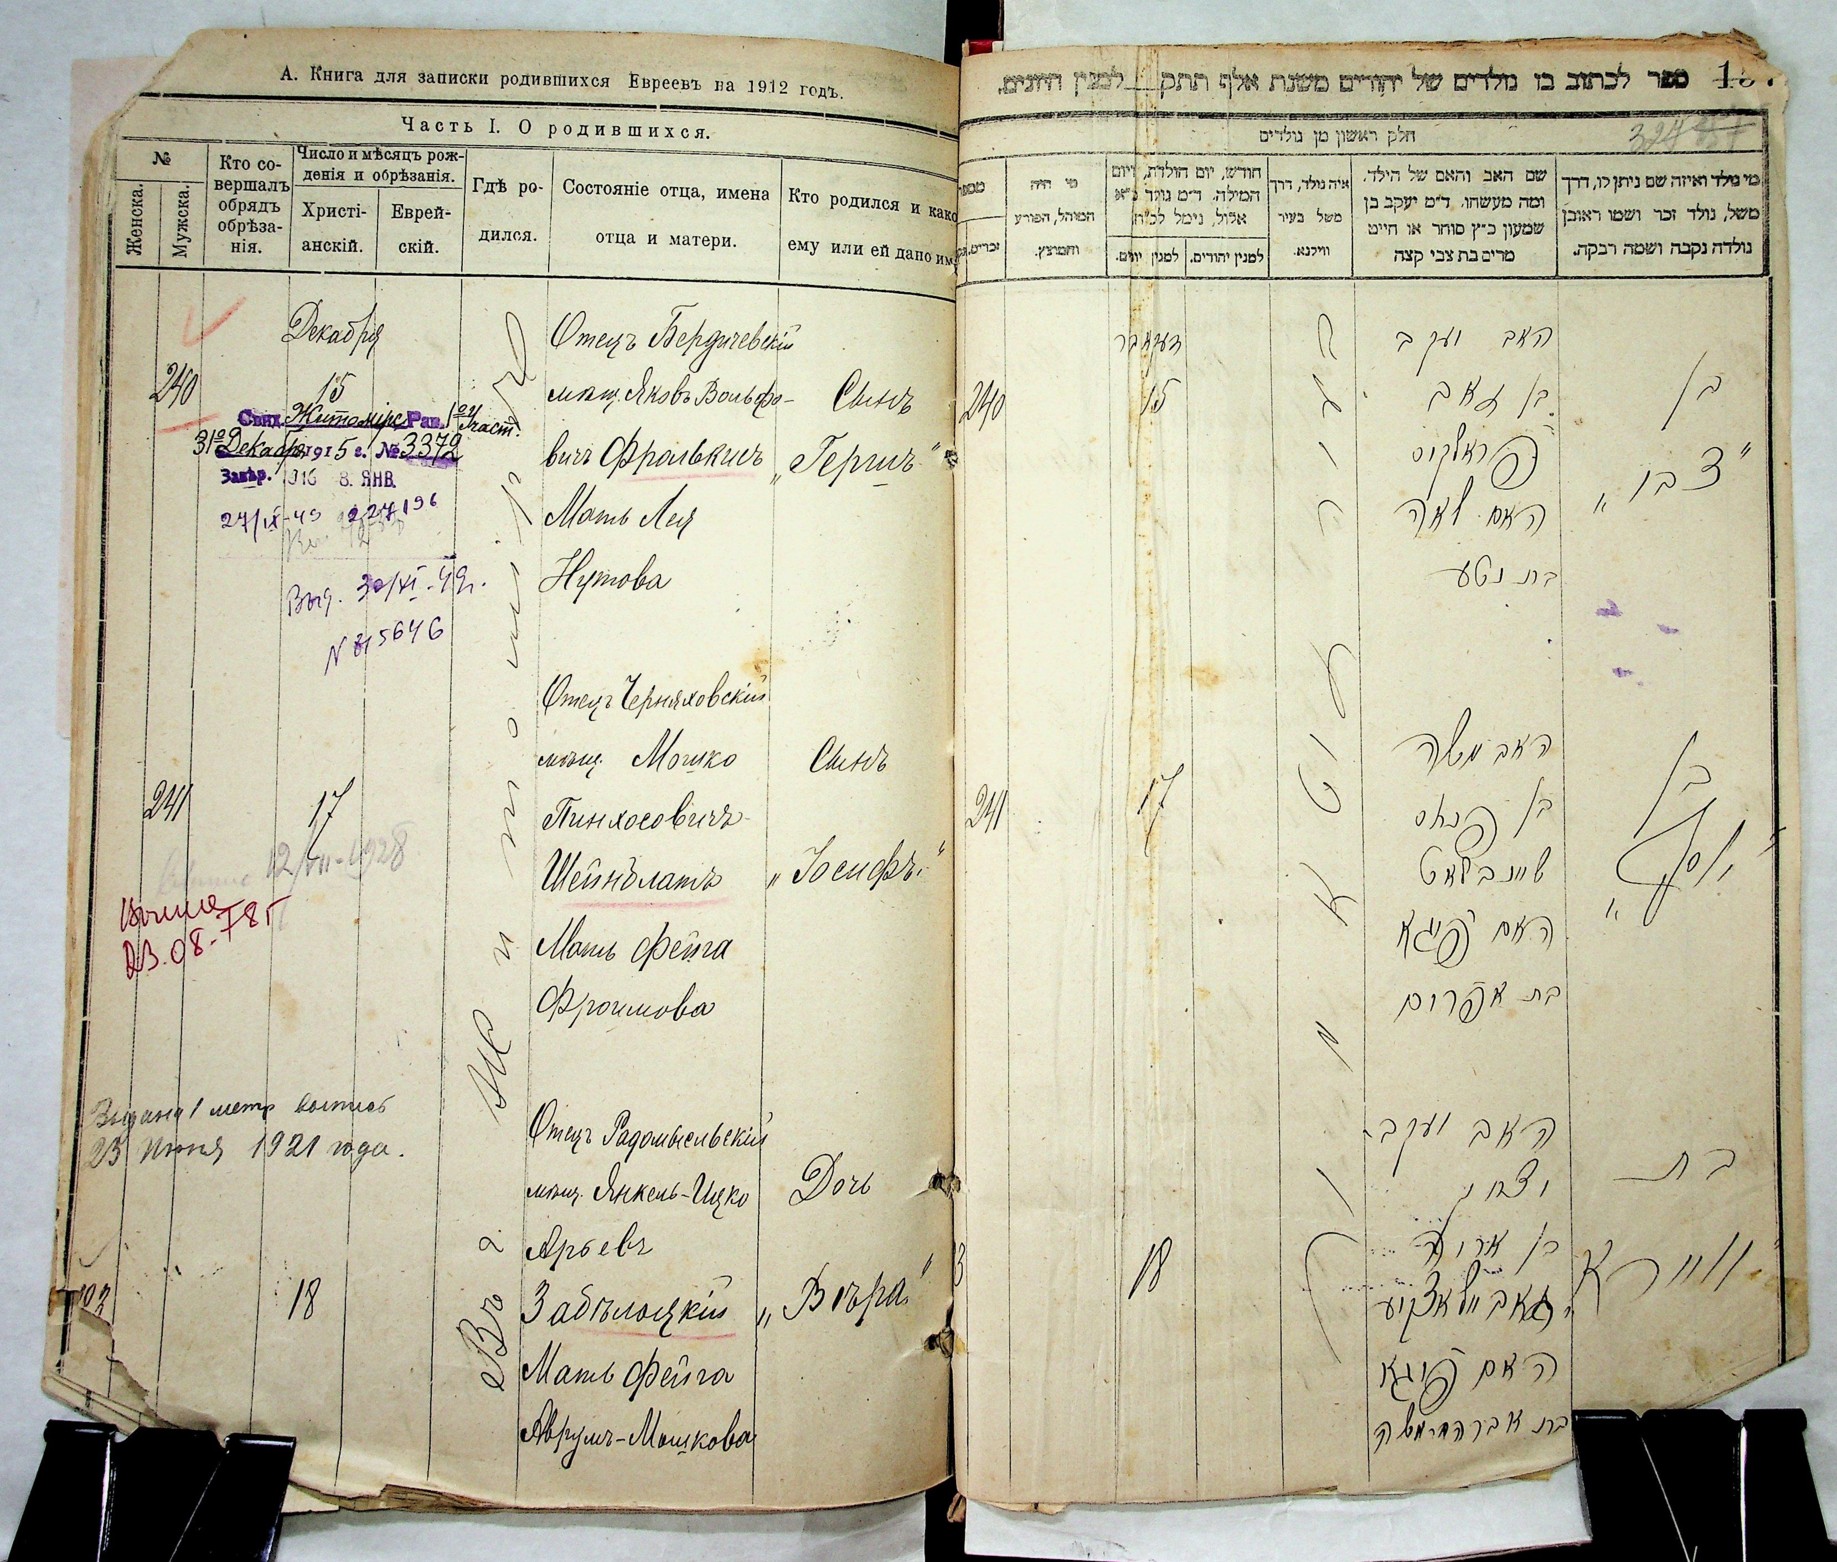 А. Книга для записки родившихся Евреевъ на 1912 годъ.
Часть I. О родившихся.
№
Женска.
Мужска.
Кто совершалъ обрядъ обрѣзанія.
Число и мѣсяцъ рожденія и обрѣзанія.
Христіанскій.
Еврейскій.
Гдѣ родился.
Состояніе отца, имена отца и матери.
Кто родился и како ему или ей дано им
Въ г. Житомирѣ
Декабря
Отецъ Бердичевскій
240
15
мѣщ. Яковъ Вольфо-
Сынъ
Свид. Житомірс Рав. 1го Участ.
31го Декабря 1915 г. № 3372
вичъ Фролькисъ
„Гершъ"
Завѣр. 1916 8. ЯНВ.
Мать Лея
27/IX-49 227196
Нутова
Выд. 30/XI-49г.
N 815646
Отецъ Черняховскій
мѣщ. Мошко
Сынъ
241
17
Пинхосовичъ
12/VII-1928
Шейнблатъ
„Іосифъ"
23.08-78г
Мать Фейга
Фроимова
Выдана 1 метр выпись
23 Июня 1921 года.
Отецъ Радомысльскій
мѣщ. Янкель-Ицко
Дочь
Арьевъ
18
Забѣлоцкій
„Вѣра"
Мать Фейга
Аврумъ-Мошкова
ספר לכתוב בו נולדים של יהודים משנת אלף תתק למנין היונים.
חלק ראשון מן נולדים
מי נולד ואיזה שם ניתן לו, דרך
משל, נולד זכר ושמו ראובן
נולדה נקבה ושמה רבקה.
שם האב והאם של הילד.
ומה מעשהו. ד"מ יעקב בן
שמעון כ"ץ סוחר או חייט
מרים בת צבי קצה
איה נולד, דרך
משל בעיר
ווילנא.
חודש, יום הולדת, ויום
המילה. ד"מ נולד כ"א
אלול, נימל לכ"ח
למנין יהודים.
למנין יונים.
מי היה
המוהל, הפורע
והמוצץ.
מספר
זכרים.
זשיטאמיר
דעקאבר
האב יעקב
בן
240
15
בן זאב
פראלקיס
„צבי"
האם לאה
בת נטע
האב משה
בן
241
17
בן פנחס
שיינבלאט
„יוסף"
האם פייגא
בת אפרים
האב יעקב
בת
יצחק
בן ארי'
18
„ווירא"
זאבילאצקי
האם פייגא
בת אברהם משה